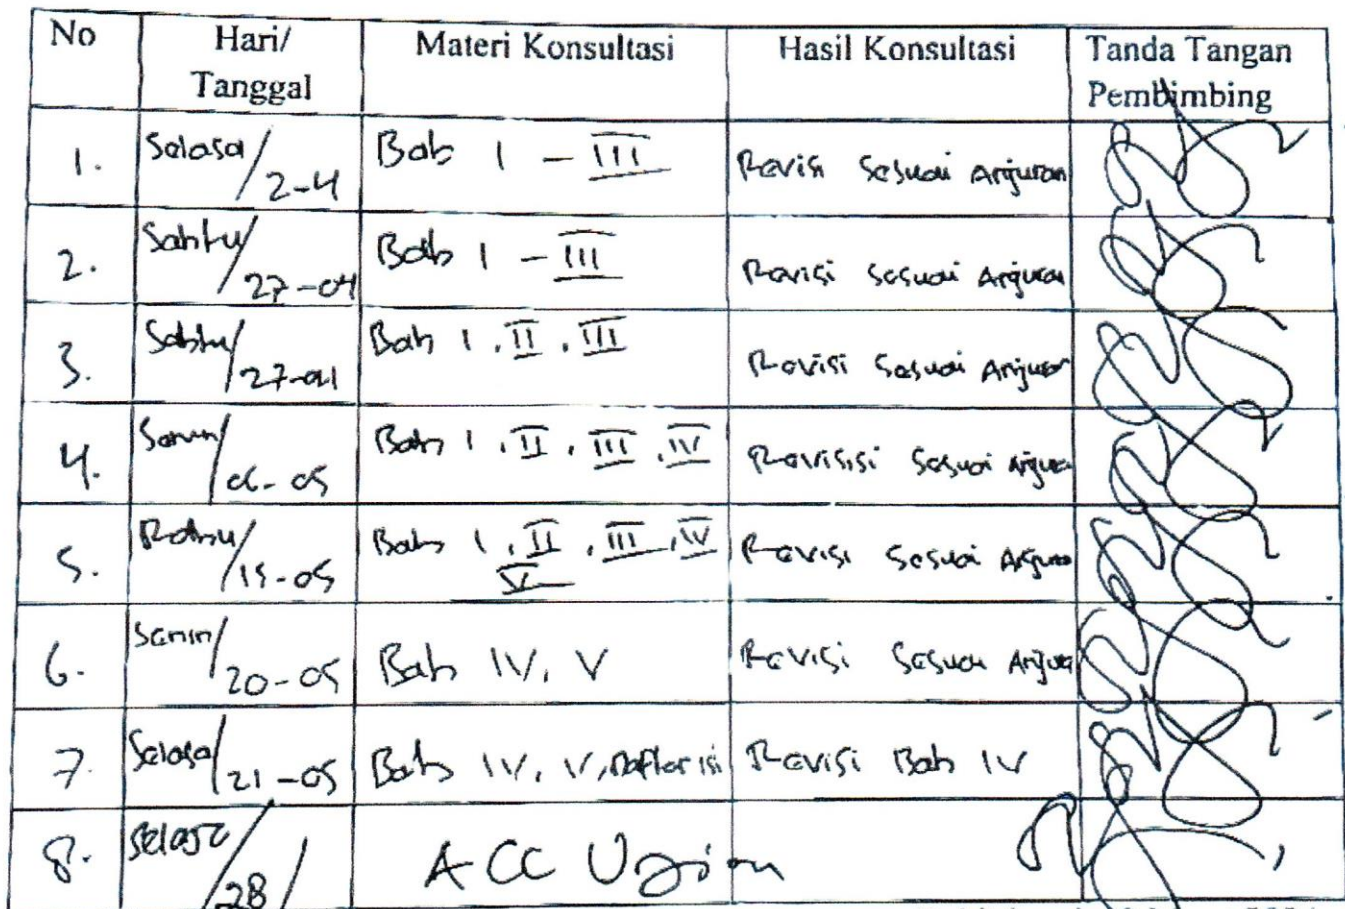 No Hari/ Tanggal Materi Konsultasi Hasil Konsultasi Tanda Tangan Pembimbing
1. Selasa/2-4 Bab I - III Revisi Sesuai Anjuran
2. Sabtu/27-04 Bab I - III Revisi Sesuai Anjuran
3. Sabtu/27-04 Bab I, II, III Revisi Sesuai Anjuran
4. Senin/06-05 Bab I, II, III, IV Revisisi Sesuai Anjura
5. Rabu/15-05 Bab I, II, III, IV V Revisi Sesuai Anjuran
6. Senin/20-05 Bab IV, V Revisi Sesuai Anjura
7. Selasa/21-05 Bab IV, V, Daftar isi Revisi Bab IV
8. Selasa/28/ ACC Ujian